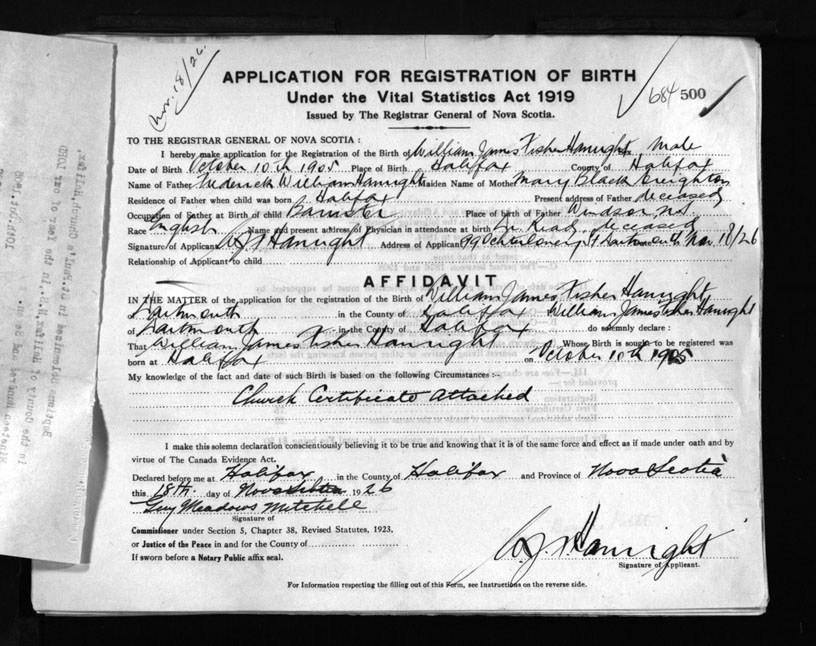 Nov. 18/26.
APPLICATION FOR REGISTRATION OF BIRTH
Under the Vital Statistics Act 1919
Issued by The Registrar General of Nova Scotia.
684 500
TO THE REGISTRAR GENERAL OF NOVA SCOTIA :
I hereby make application for the Registration of the Birth of William James Fisher Hanright, Male
Date of Birth October 10th 1905 Place of Birth Halifax County of Halifax
Name of Father Frederick William Hanright Maiden Name of Mother Mary Black Creighton
Residence of Father when child was born Halifax Present address of Father deceased
Occupation of Father at Birth of child Barrister Place of birth of Father Windsor, N.S.
Race English Name and present address of Physician in attendance at birth Dr. Ready, deceased
Signature of Applicant W J F Hanright Address of Applicant 99 Ochterloney St Dartmouth Nov. 18/26
Relationship of Applicant to child
AFFIDAVIT
IN THE MATTER of the application for the registration of the Birth of William James Fisher Hanright
Dartmouth in the County of Halifax William James Fisher Hanright
of Dartmouth in the County of Halifax do solemnly declare :
That William James Fisher Hanright Whose Birth is sought to be registered was
born at Halifax on October 10th 1905
My knowledge of the fact and date of such Birth is based on the following Circumstances :-
Church Certificate Attached
I make this solemn declaration conscientiously believing it to be true and knowing that it is of the same force and effect as if made under oath and by
virtue of The Canada Evidence Act.
Declared before me at Halifax in the County of Halifax and Province of Nova Scotia
this 18th day of 1926
Guy Meadows Mitchell
Signature of
Commissioner under Section 5, Chapter 38, Revised Statutes, 1923,
or Justice of the Peace in and for the County of
If sworn before a Notary Public affix seal.
W J F Hanright
Signature of Applicant.
For Information respecting the filling out of this Form, see Instructions on the reverse side.